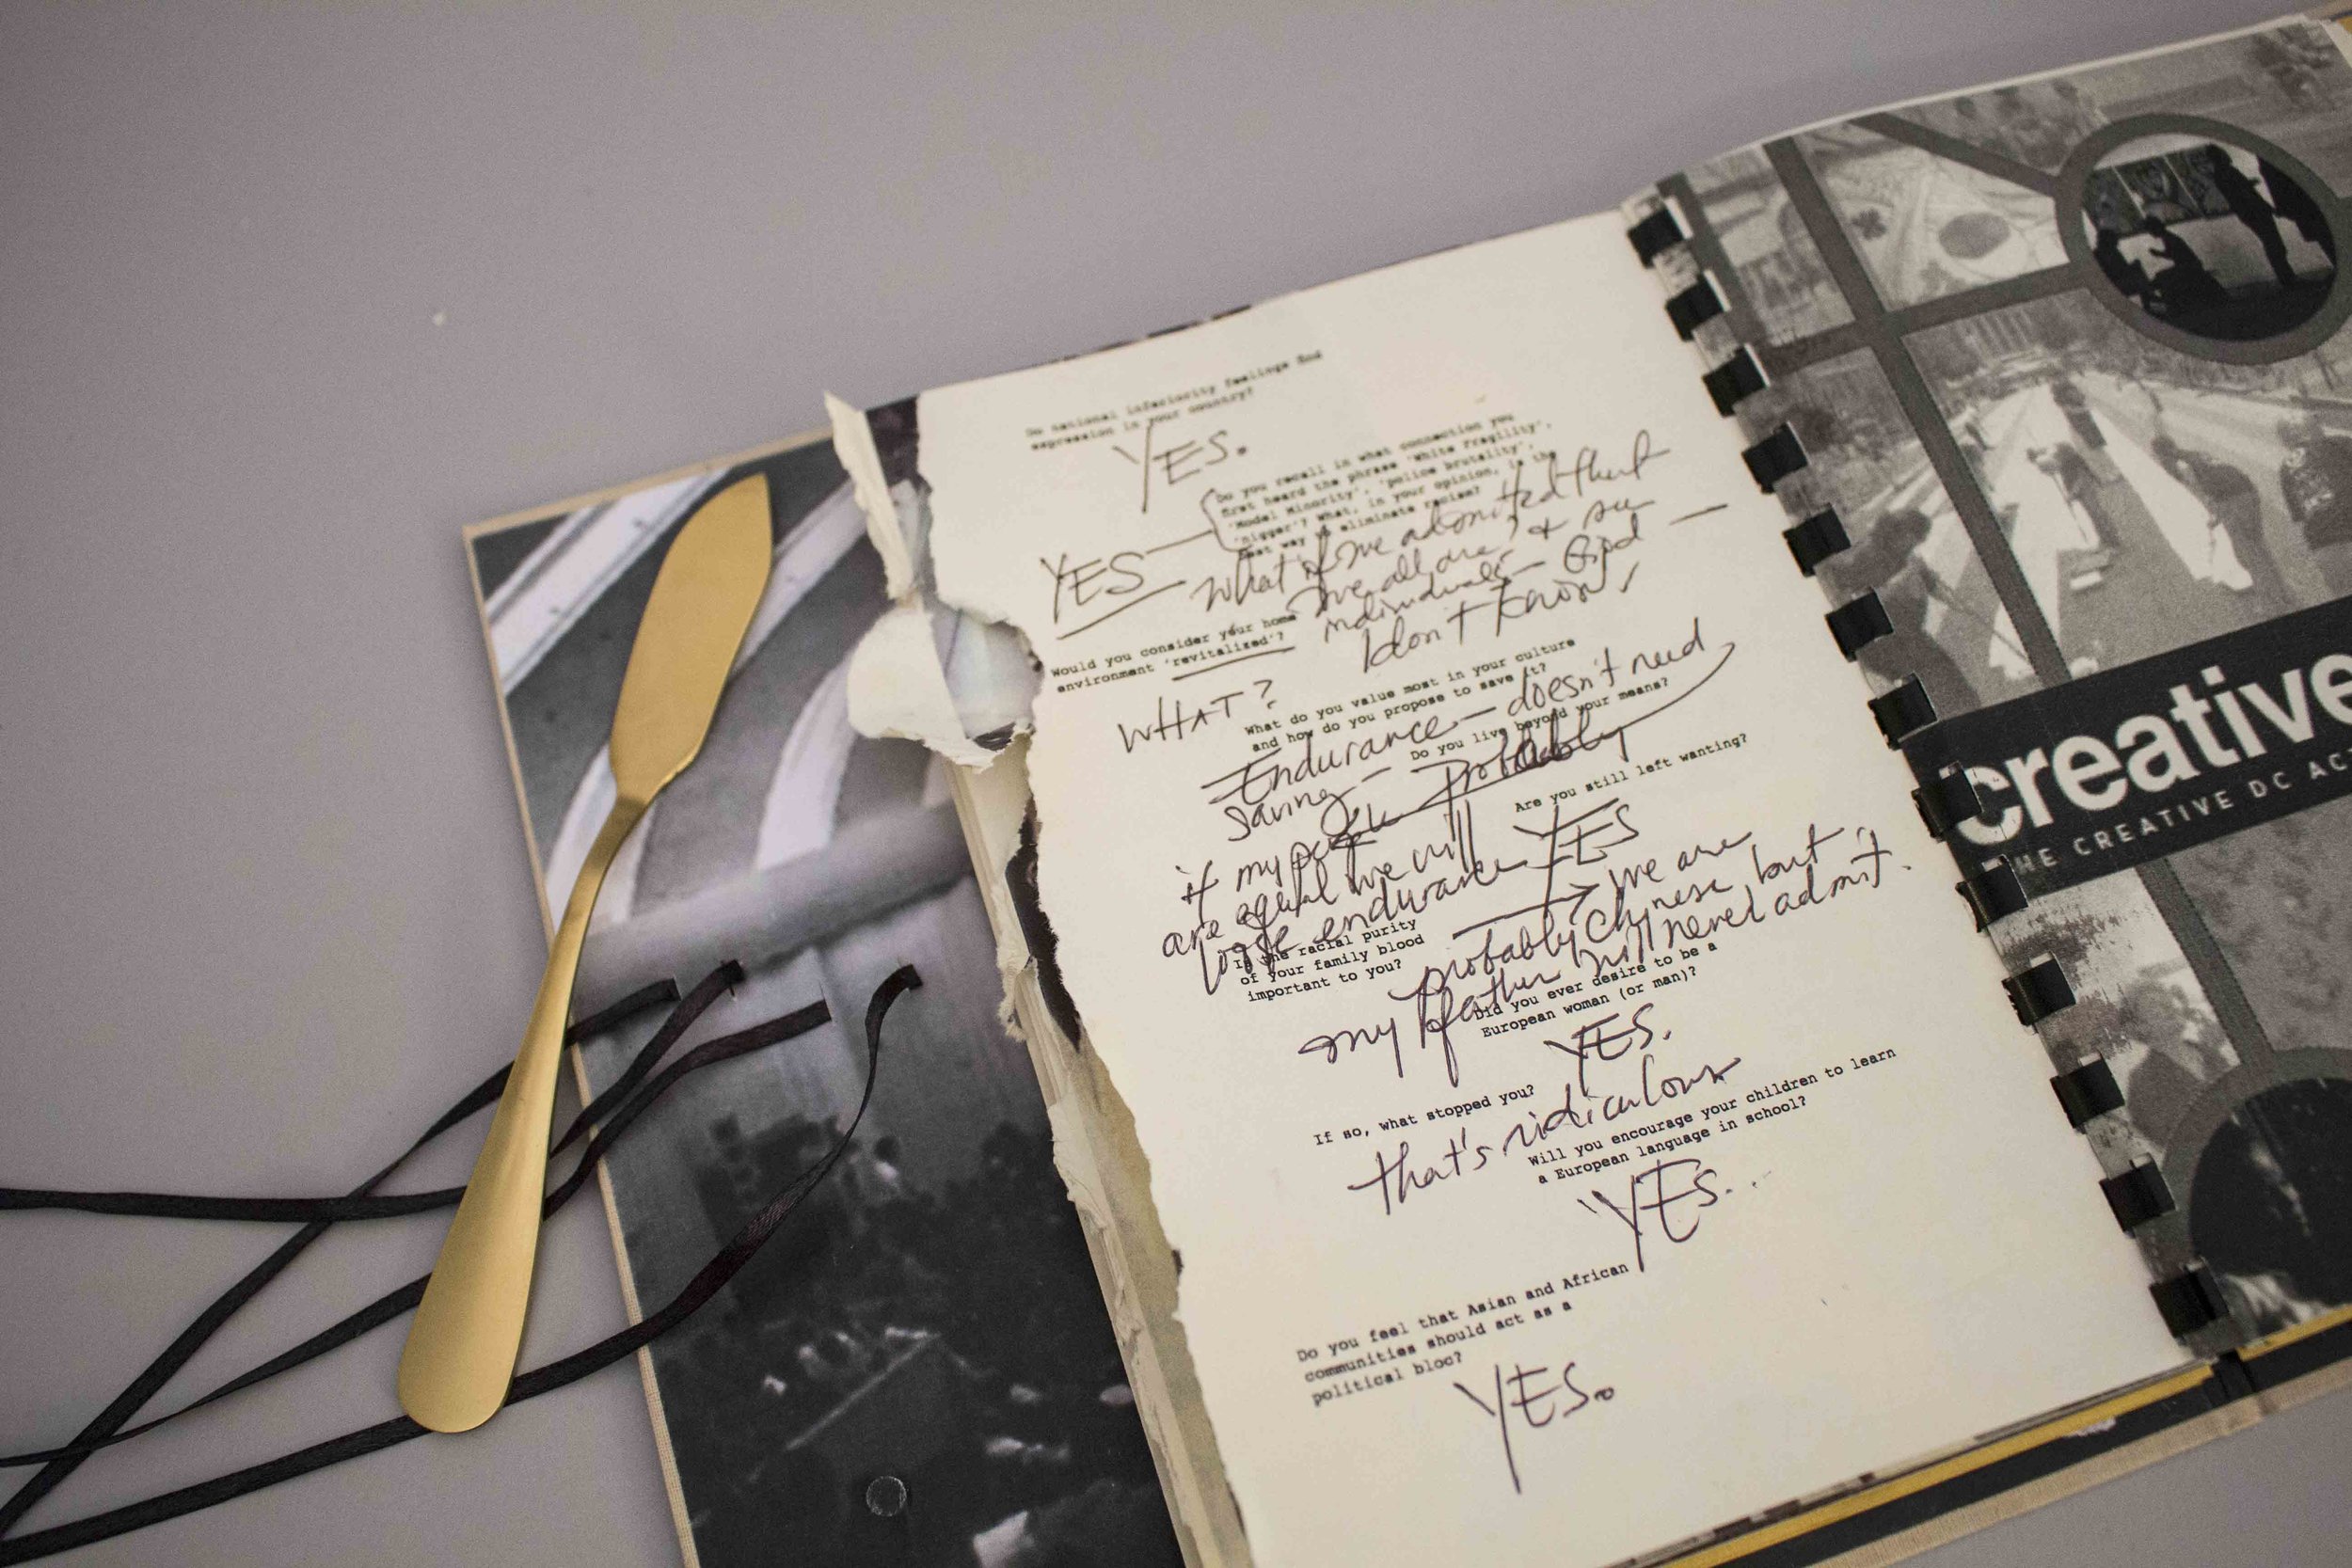 Do national inferiority feelings find
expression in your country?
YES.
Do you recall in what connection you
first heard the phrase 'White Fragility',
'Model Minority', 'police brutality',
'nigger'? What, in your opinion, is the
best way to eliminate racism?
YES
What if we admitted that
we all are? & su
individuals — God
I don't know!
Would you consider your home
environment 'revitalized'?
WHAT?
What do you value most in your culture
and how do you propose to save it?
Endurance — doesn't need
saving —
Do you live beyond your means?
Probably
Are you still left wanting?
YES
if my
are equal we will
loose endurance
Is the racial purity
of your family blood
important to you?
we are
probably Chynese, but
my father will never admit.
Did you ever desire to be a
European woman (or man)?
YES.
If so, what stopped you?
that's ridiculous
Will you encourage your children to learn
a European language in school?
YES..
Do you feel that Asian and African
communities should act as a
political bloc?
YES.
creative
THE CREATIVE DC AC